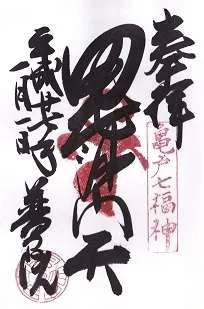 奉拝
亀戸七福神
毘沙門天
平成廿年
一月一日
普門院